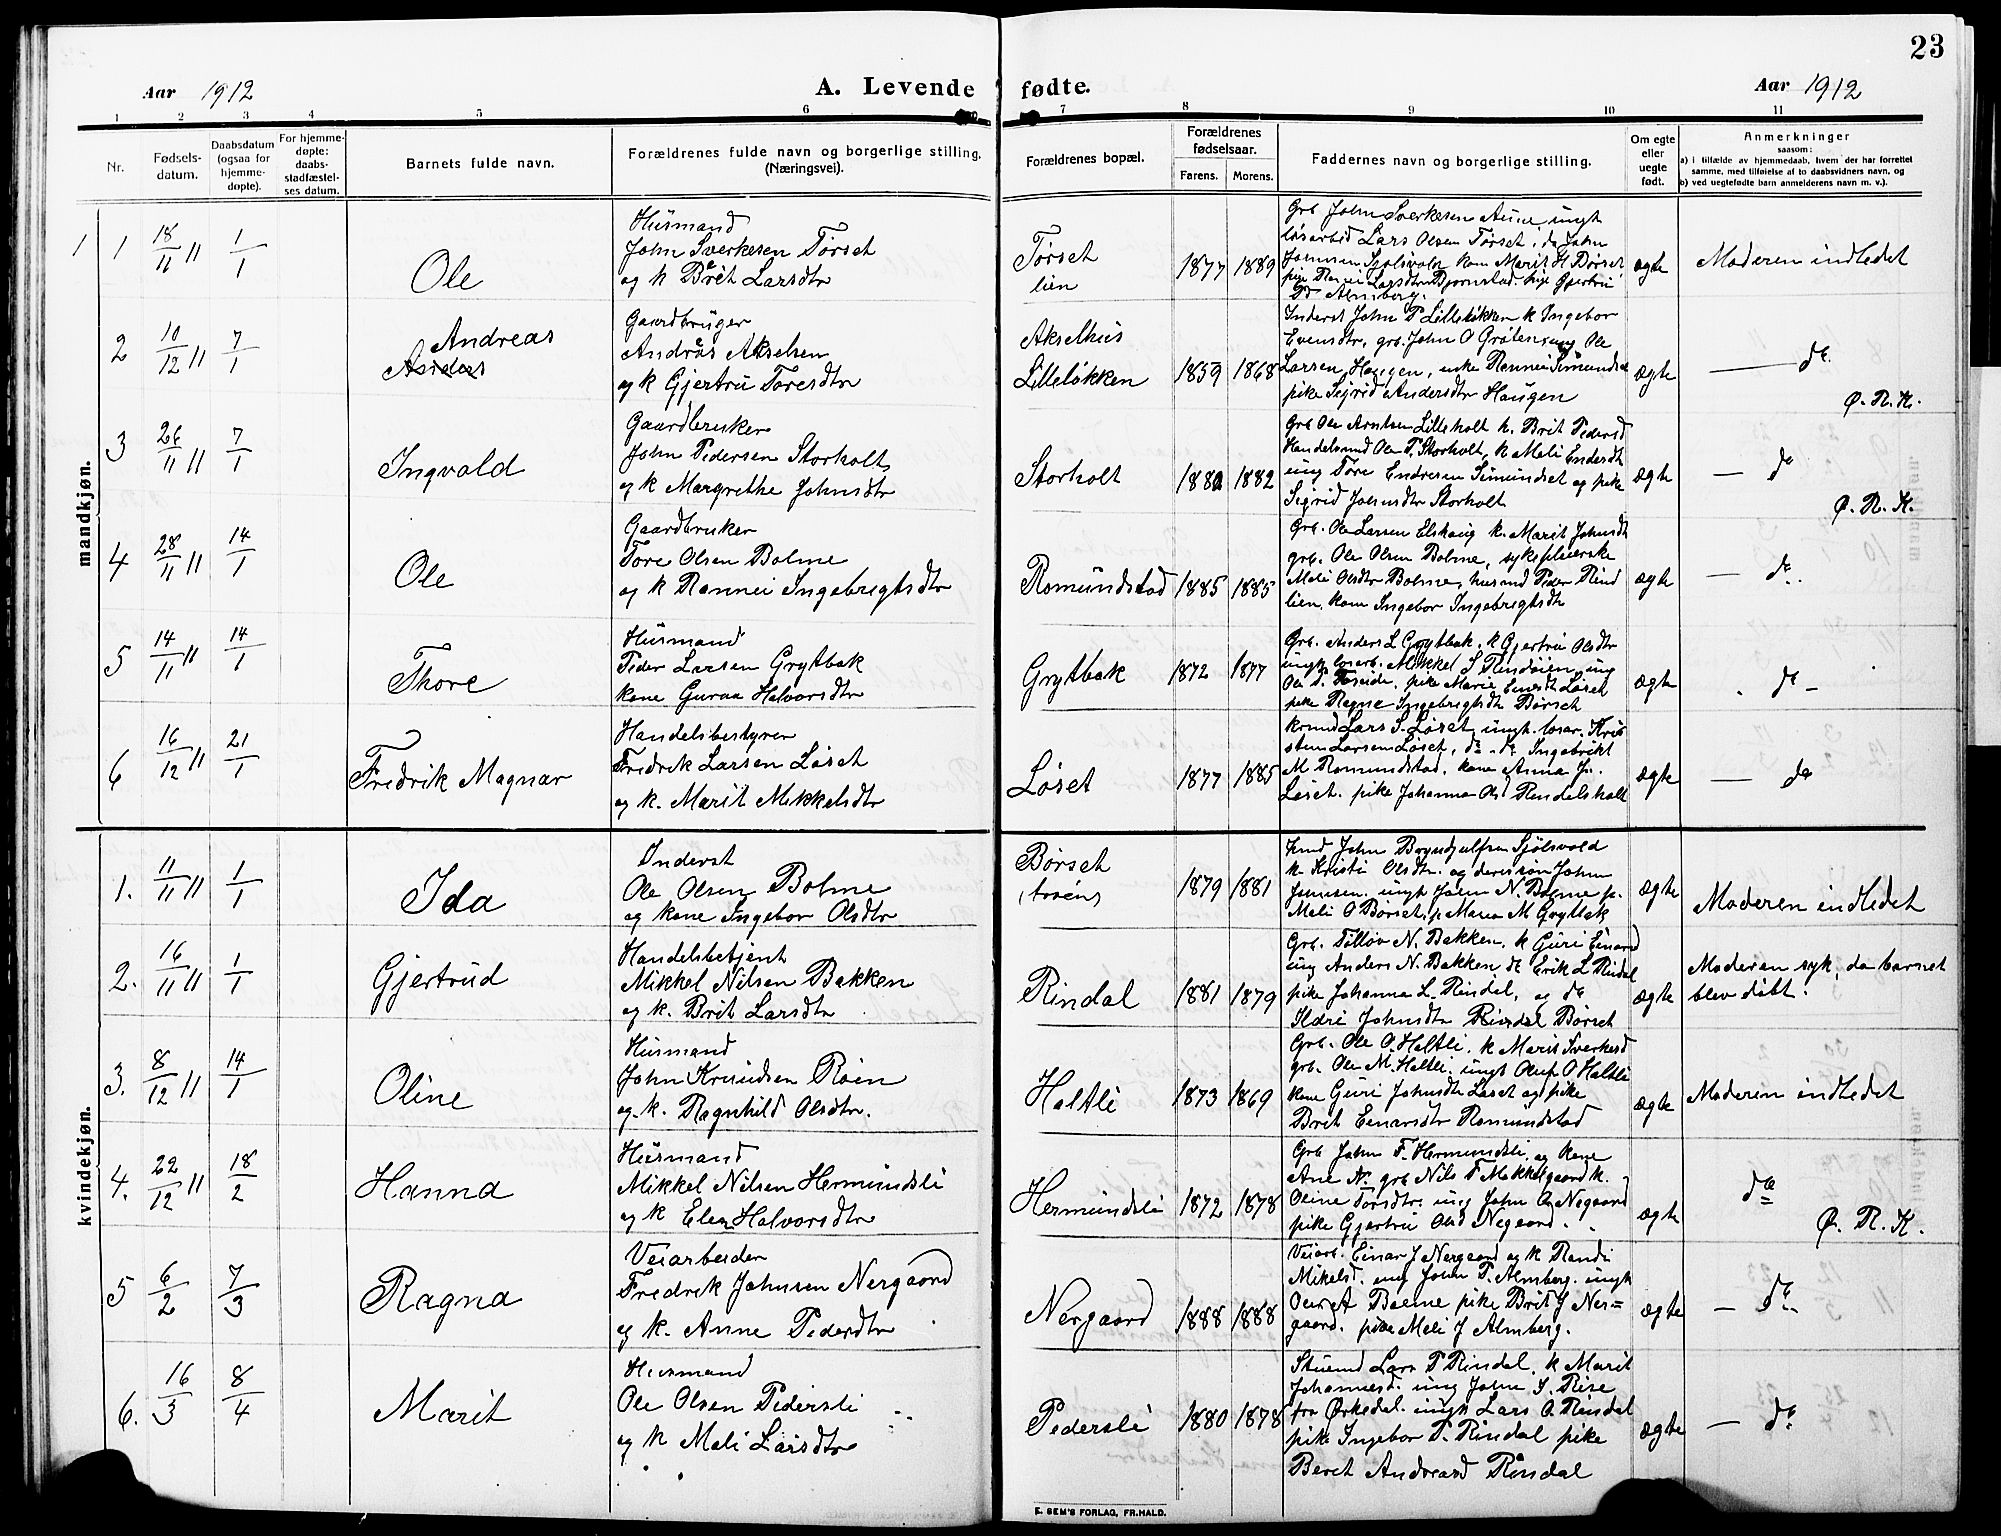 23
Aar 1912
A. Levende fødte.
Aar 1912
1 2 3 4 5 6 7 8 9 10 11
Nr.
Fødsels-
datum.
Daabsdatum
(ogsaa for
hjemme-
døpte).
For hjemme-
døpte:
daabs-
stadfæstel-
ses datum.
Barnets fulde navn.
Forældrenes fulde navn og borgerlige stilling.
(Næringsvei).
Forældrenes bopæl.
Forældrenes
fødselsaar.
Farens. Morens.
Faddernes navn og borgerlige stilling.
Om egte
eller
uegte
født.
Anmerkninger
saasom:
a) i tilfælde av hjemmedaab, hvem der har forrettet
samme, med tilføielse af to daabsvidners navn, og
b) ved uegtefødte barn anmelderens navn m. v.).
mandkjøn.
1 1 18/11 11 1/1
Ole
Husmand
John Sverkesen Tørset
og k Brit Larsdtr
Tørset
lien
1877 1889
Grb John Sverkesen Aune ungk
løsarbid Lars Olsen Tørset, do John
Johnsen Sjølsvold kone Marit H Børset
pike Rannei Larsdtr Bjørnstad. pike Gjertru
Almberg.
ægte
Moderen indledet
2 10/12 11 7/1
Andreas
Anders
Gaardbruger
Andreas Akselsen
og k Gjertru Toresdtr
Akselhus
Lilleløkken
1859 1868
Inderst John P Lilleløkken k Ingebor
Evensdtr, grb. John O Grøten ung Ole
Larsen Haugen, enke Rannei Simundset
pike Sigrid Andersdtr Haugen
ægte
— do
Ø. R. K.
3 26/11 11 7/1
Ingvald
Gaardbruker
John Pedersen Storholt
og k Margrethe Johnsdtr
Storholt
1882
Grb Ole Arntsen Lilleholt k. Brit Pedersd
Handelsmd Ole T. Storholt, k Meli Endersdt
ung Tore Endresen Simundset og pike
Sigrid Johnsdtr Storholt
ægte
— do
Ø. R. K.
4 28/11 11 14/1
Ole
Gaardbruker
Tore Olsen Bolme
og k Rannei Ingebrigtsdtr
Romundstad
1885 1885
Grb. Ole Larsen Elshaug k. Marit Johnsdt
grb. Ole Olsen Bolme, sykepleierske
Meli Olsdtr Bolme, husmd Peder Rind
lien, kone Ingebor Ingebrigtsdt
ægte
— do.
5 14/11 11 14/1
Thore
Husmand
Peder Larsen Grytbak
kone Guraa Halvorsdtr
Grytbak
1872 1877
Grb. Anders L Grytbak, k Gjertru Olsdtr
ungk losarb. Mikkel S Rendøien, ung
Ole T. Foseide, pike Marie Einersdt Løset
pike Ragne Ingebrigtsdt Børset
ægte
do —
6 16/12 11 21/1
Fredrik Magnar
Handelsbestyrer
Fredrik Larsen Løset
og k. Marit Mikkelsdtr
Løset
1877 1885
Krmd Lars S. Løset, ungk. losar. Kris
sten Larsen Løset, do – do Ingebrikt
M Romundstad, kone Anna J.
Løset. pike Johanna Olsd Rendalsholt
ægte
— do
kvindekjøn.
1. 11/11 11 1/1
Ida
Inderst
Ole Olsen Bolme
og kone Ingebor Olsdtr
Børset
trøen
1879 1881
John Brynjulfsen Sjølsvold
k. Kristi Olsdtr. og deres søn John
Johnsen. ungk John N. Bolme p.
Meli O Børset, p Maren M Grytbak
ægte
Moderen indledet
2. 16/11 11 1/1
Gjertrud
Handelsbetjent
Mikkel Nilsen Bakken
og k. Brit Larsdtr
Rindal
1881 1879
Grb. Tølløv N. Bakken, k Guri Einarsd
ung Anders N. Bakken do Erik L Rindal
pike Johanna L. Rindal, og do
Ildri Johnsdtr Rindal Børset
ægte
Moderen syk, da barnet
blev døbt.
3. 8/12 11 14/1
Oline
Husmand
John Knudsen Røen
og k. Ragnhild Olsdtr.
Haltli
1873 1869
Grb. Ole O. Haltli. k Marit Sverkesd
grb. Ole M. Haltli. ungk Oluf O Haltli
kone Guri Johnsdtr Løset og pike
Brit Einarsdtr Romundstad
ægte
Moderen indledet
4. 22/12 11 18/2
Hanna
Husmand
Mikkel Nilsen Hermundsli
og k Elen Halvorsdtr
Hermundsli
1872 1878
Grb John F. Hermundsli, og kone
Ane N. grb Nils T Mikkelgaard k.
Oline Torsdtr. ung John O Negaard
pike Gjertru Olsd Negaard.
ægte
do
Ø. R. K.
5 6/2 7/3
Ragna
Veiarbeider
Fredrik Johnsen Nergaard
og k. Anne Pedersdtr
Nergaard
1888 1888
Veiarb. Einar J Nergaard og k Randi
Mikelsd. ung John T. Almberg. ungk
Bolme pike Brit J Ner=
gaard. pike Meli J Almberg.
ægte
— do
6. 16/3 8/4
Marit
Husmand
Ole Olsen Pedersli
og k Meli Larsdtr
Pedersli
1880 1878
Lars P Rindal, k Marit
Johannesd. ung John J. Rise
fra Ørkedal. ungk Lars O. Rindal
pike Ingebor P. Rindal pike
Beret Andreasd Rindal
ægte
— do
E. SEM'S FORLAG, FR.HALD.